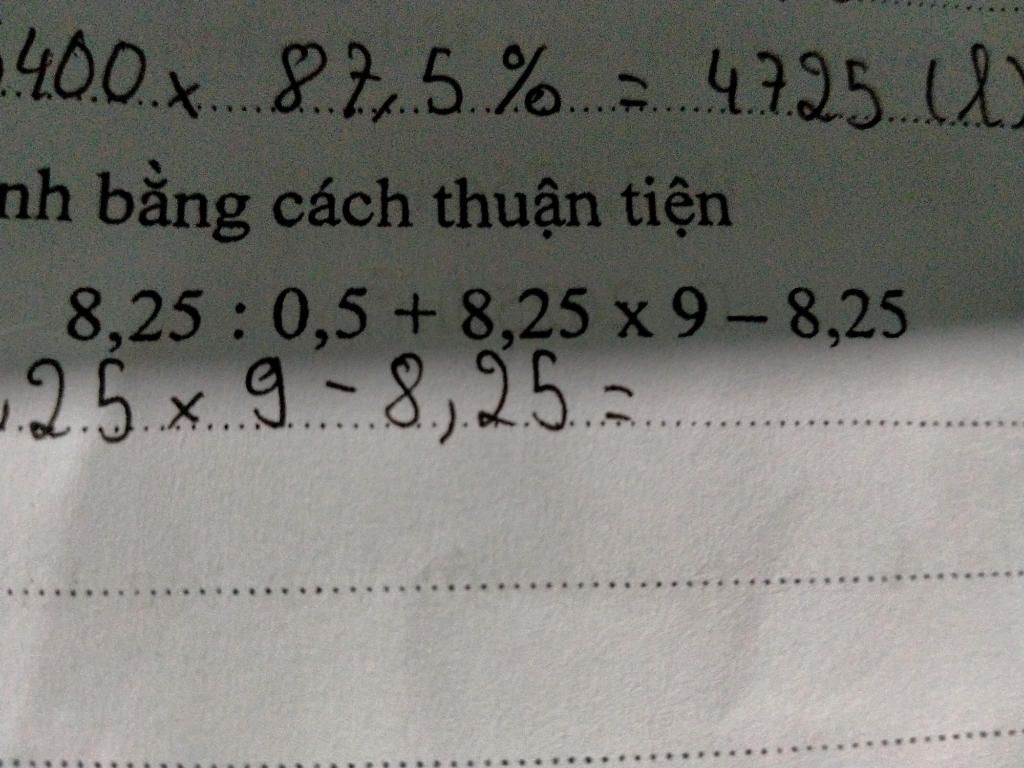 400 x 87,5 % = 4725 (l)
nh bằng cách thuận tiện
8,25 : 0,5 + 8,25 x 9 – 8,25
,25 x 9 - 8,25 =